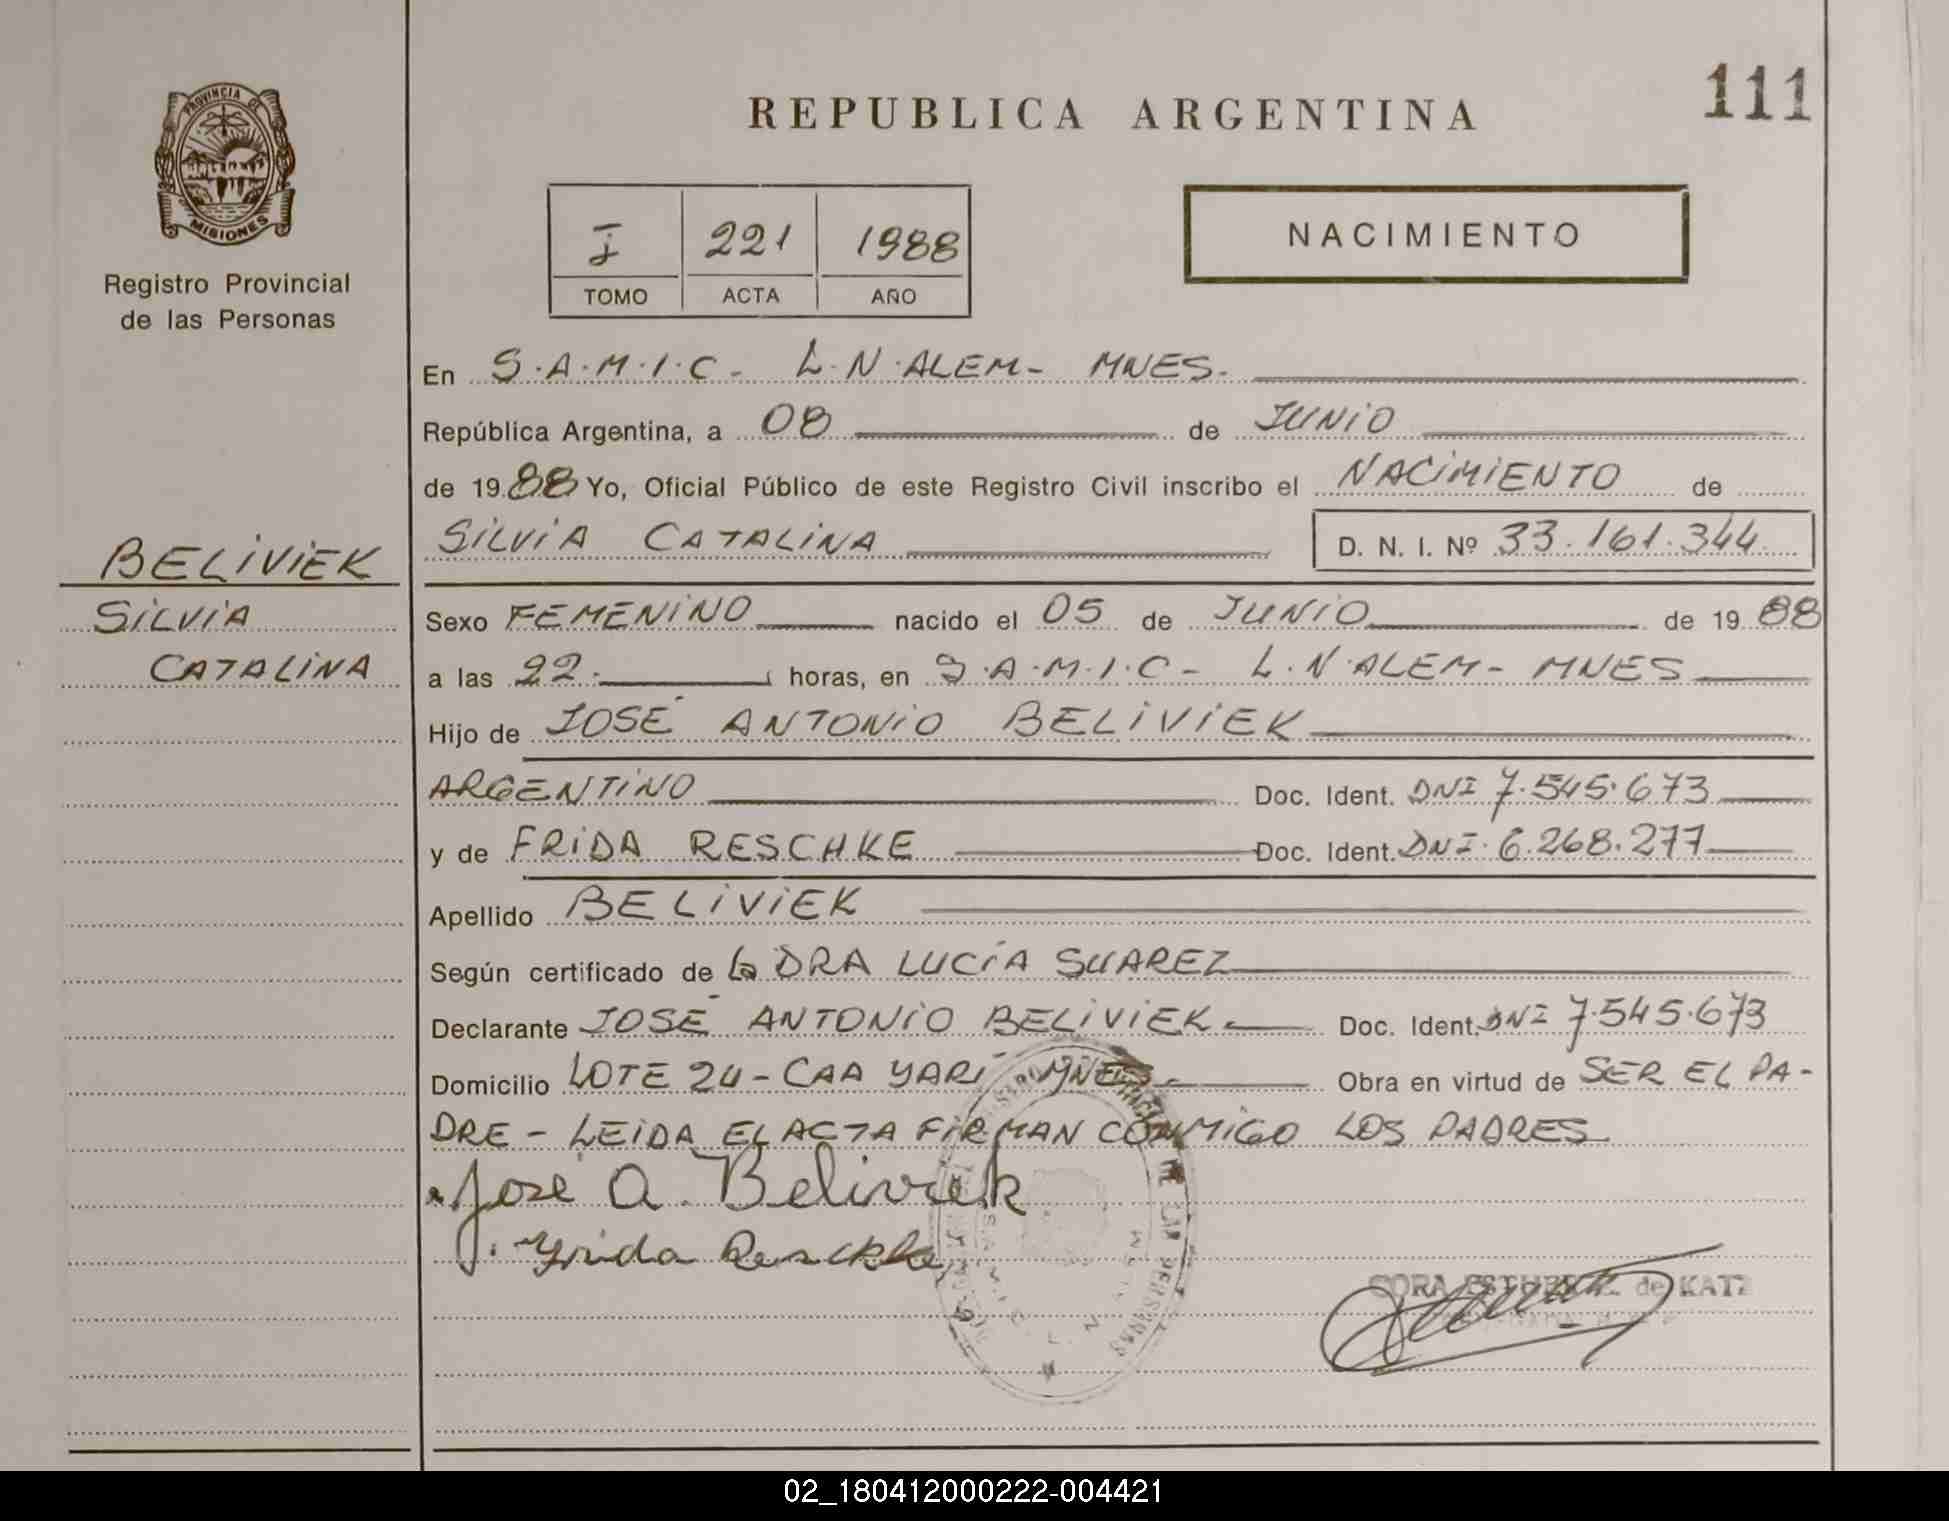 PROVINCIA DE
MISIONES
Registro Provincial
de las Personas
BELIVIEK
SILVIA
CATALINA
111
REPUBLICA ARGENTINA
I 221 1988
TOMO ACTA AÑO
NACIMIENTO
En S.A.M.I.C - L.N.ALEM - MNES.
República Argentina, a 08 de JUNIO
de 1988 Yo, Oficial Público de este Registro Civil inscribo el NACIMIENTO de
SILVIA CATALINA D. N. I. Nº 33.161.344
Sexo FEMENINO nacido el 05 de JUNIO de 1988
a las 22 horas, en S.A.M.I.C - L.N.ALEM - MNES
Hijo de JOSÉ ANTONIO BELIVIEK
ARGENTINO Doc. Ident. DNI 7.545.673
y de FRIDA RESCHKE Doc. Ident. DNI. 6.268.277
Apellido BELIVIEK
Según certificado de la DRA LUCÍA SUAREZ
Declarante JOSÉ ANTONIO BELIVIEK Doc. Ident. DNI 7.545.673
Domicilio LOTE 24 - CAA YARÍ MNES. Obra en virtud de SER EL PA-
DRE - LEIDA EL ACTA FIRMAN CONMIGO LOS PADRES
José A. Beliviek
Frida Reschke
de KATZ
02_180412000222-004421